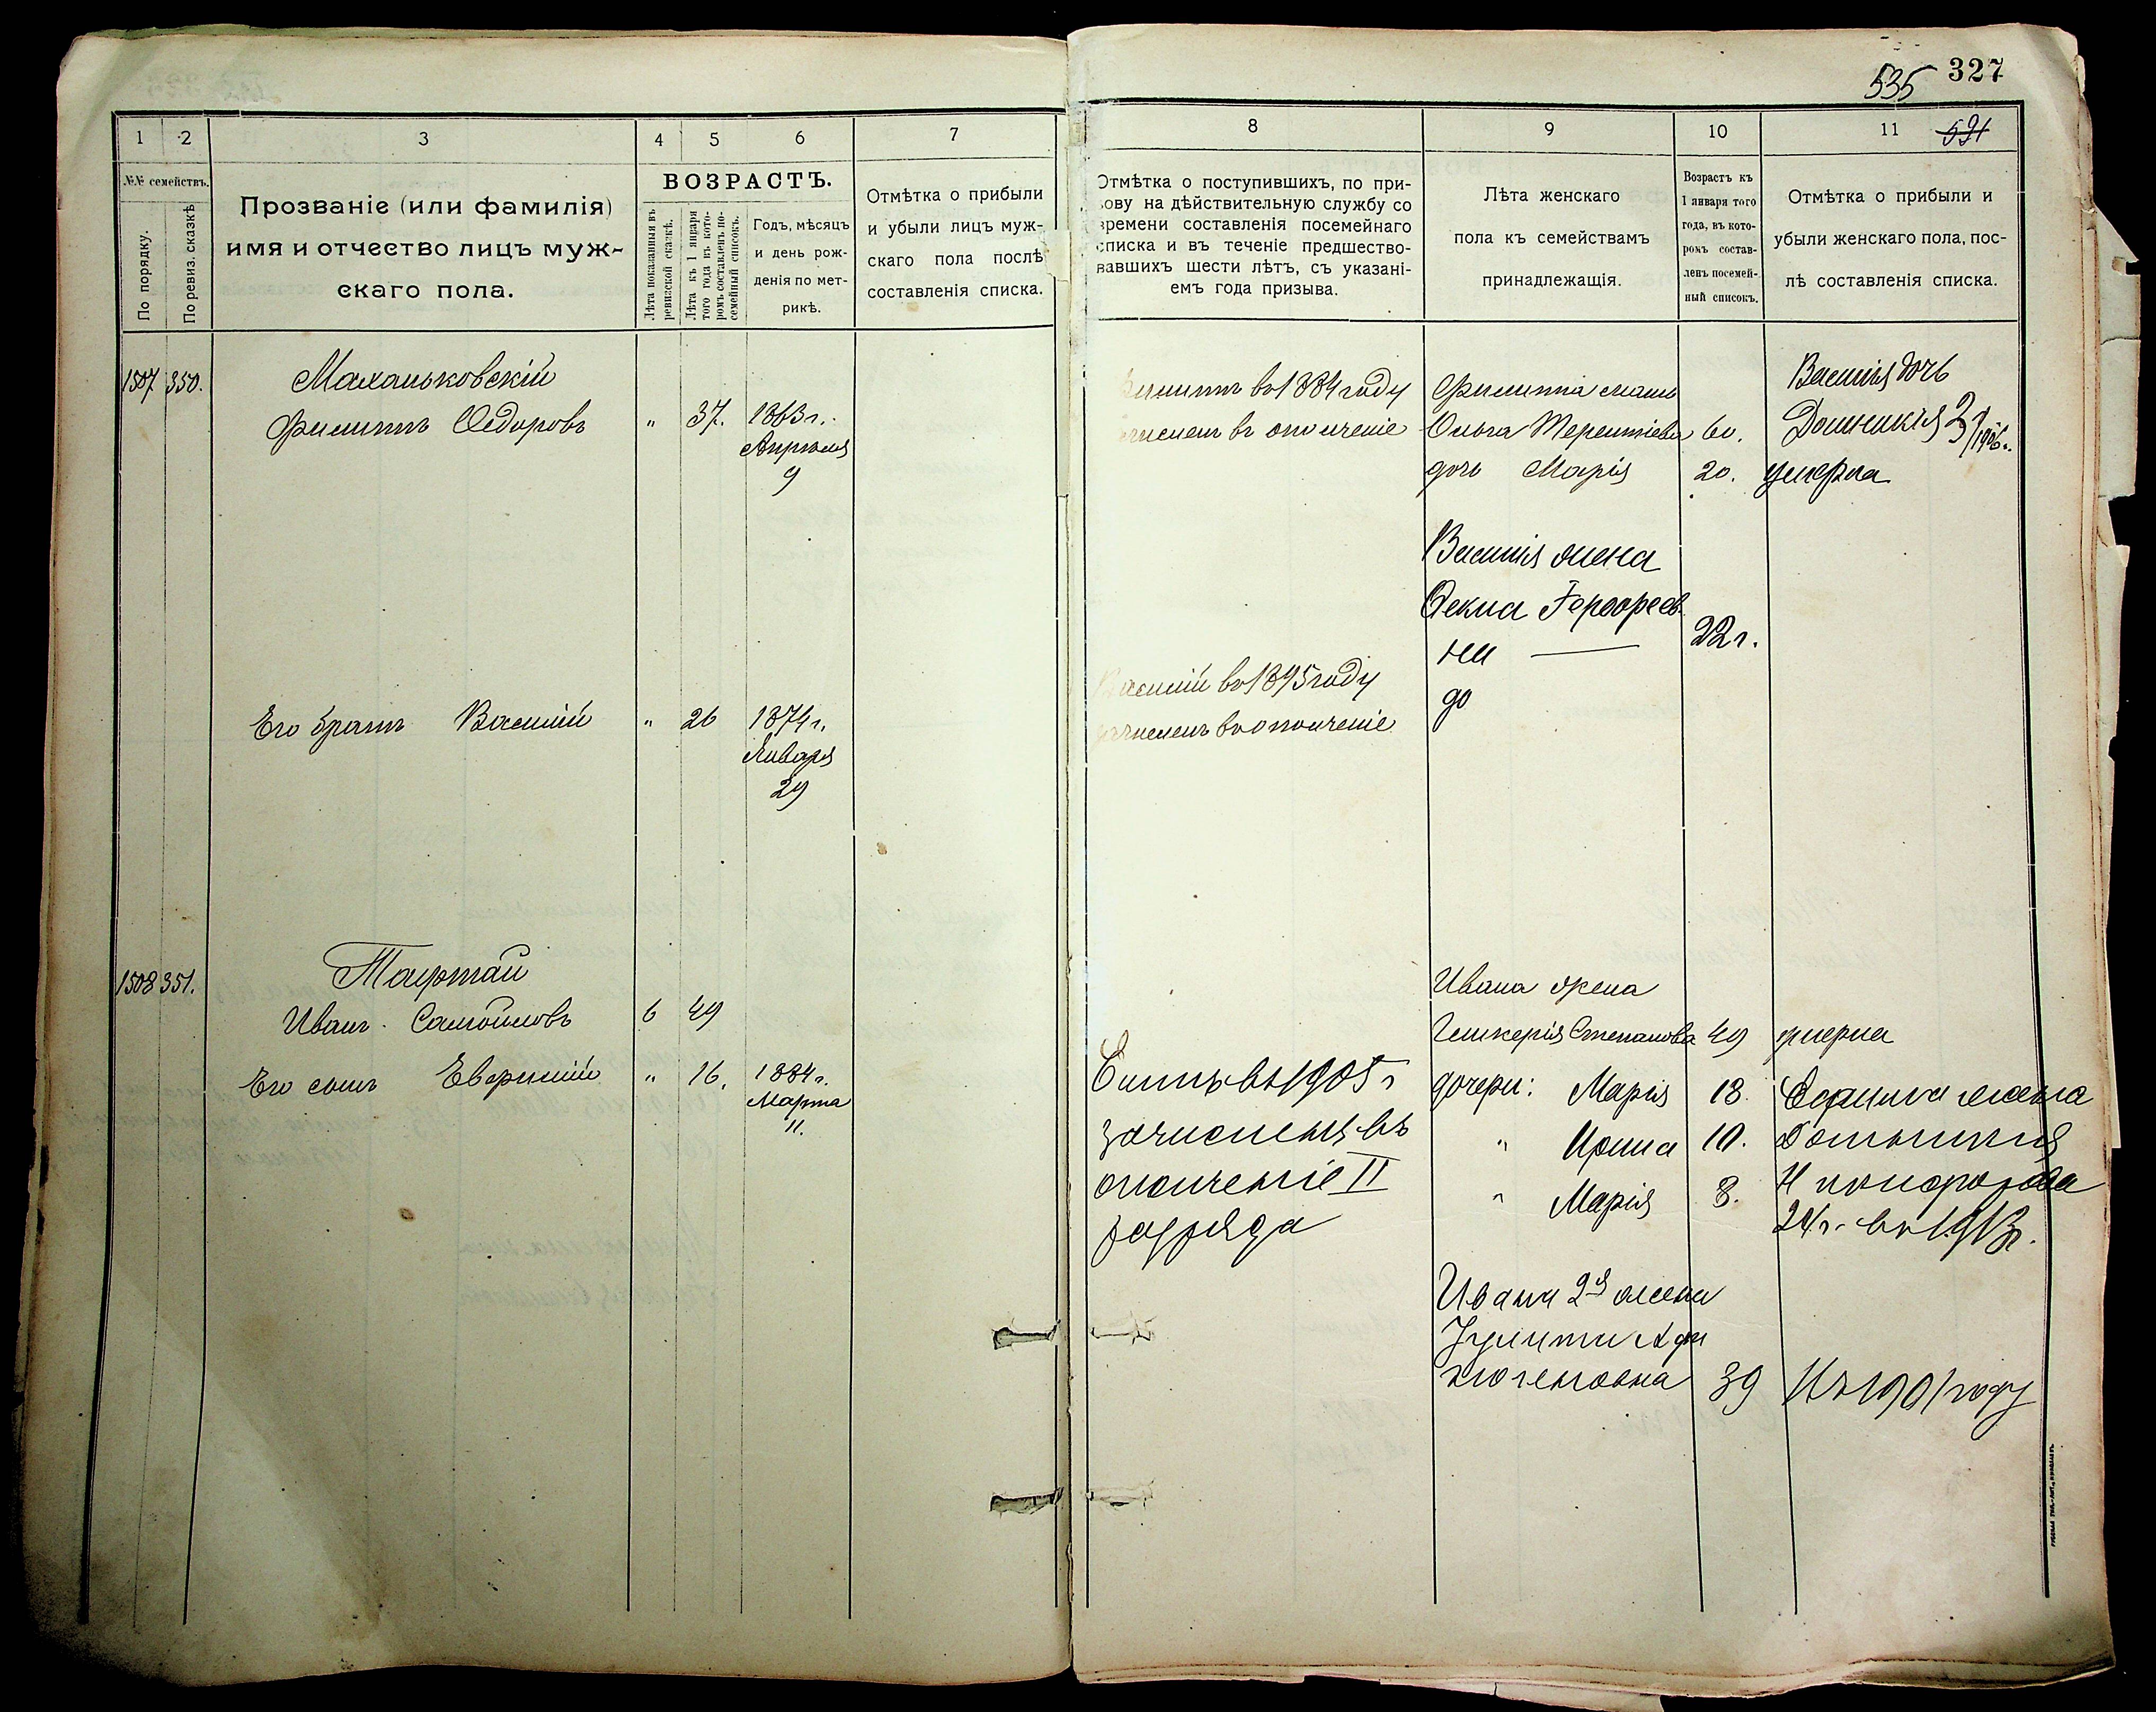 327
535
521
1
2
3
4
5
6
7
№№ семействъ.
По порядку.
По ревиз. сказкѣ
Прозваніе (или фамилія)
имя и отчество лицъ муж-
скаго пола.
ВОЗРАСТЪ.
Лѣта показанныя въ
ревизской сказкѣ.
Лѣта къ 1 января
того года въ кото-
ромъ составленъ по-
семейный списокъ.
Годъ, мѣсяцъ
и день рож-
денія по мет-
рикѣ.
Отмѣтка о прибыли
и убыли лицъ муж-
скаго пола послѣ
составленія списка.
1507 350.
Маханьковскій
Филиппъ Ѳедоровъ " 37. 1863 г.
Апрѣля
9
Его братъ Василій " 26 1874 г.
Января
29
1508 351.
Тафтай
Иванъ Самойловъ 6 49
Его сынъ Евфимій " 16. 1884 г.
Марта
11.
8
9
10
11
Отмѣтка о поступившихъ, по при-
зову на дѣйствительную службу со
времени составленія посемейнаго
списка и въ теченіе предшество-
вавшихъ шести лѣтъ, съ указані-
емъ года призыва.
Лѣта женскаго
пола къ семействамъ
принадлежащія.
Возрастъ къ
1 января того
года, въ кото-
ромъ состав-
ленъ посемей-
ный списокъ.
Отмѣтка о прибыли и
убыли женскаго пола, пос-
лѣ составленія списка.
Филиппъ въ 1884 году
зачисленъ въ ополченіе
Филиппа мать
Ольга Терентіева 60.
дочь Марія 20.
Василія дочь
Домникія
1906 г.
умерла
Василія жена
Ѳекла
на 22 г.
до
Василій въ 1895 году
зачисленъ въ ополченіе
Ивана жена
Гликерія Степанова 49 умерла
дочери: Марія 18.
" Ирина 10.
" Марія 8.
въ 1905 г
зачисленъ въ
ополченіе II
разряда
жена
Домникія
Никифорова
24 г. въ 1913 г.
Ивана 2я жена
39 въ 1901 году